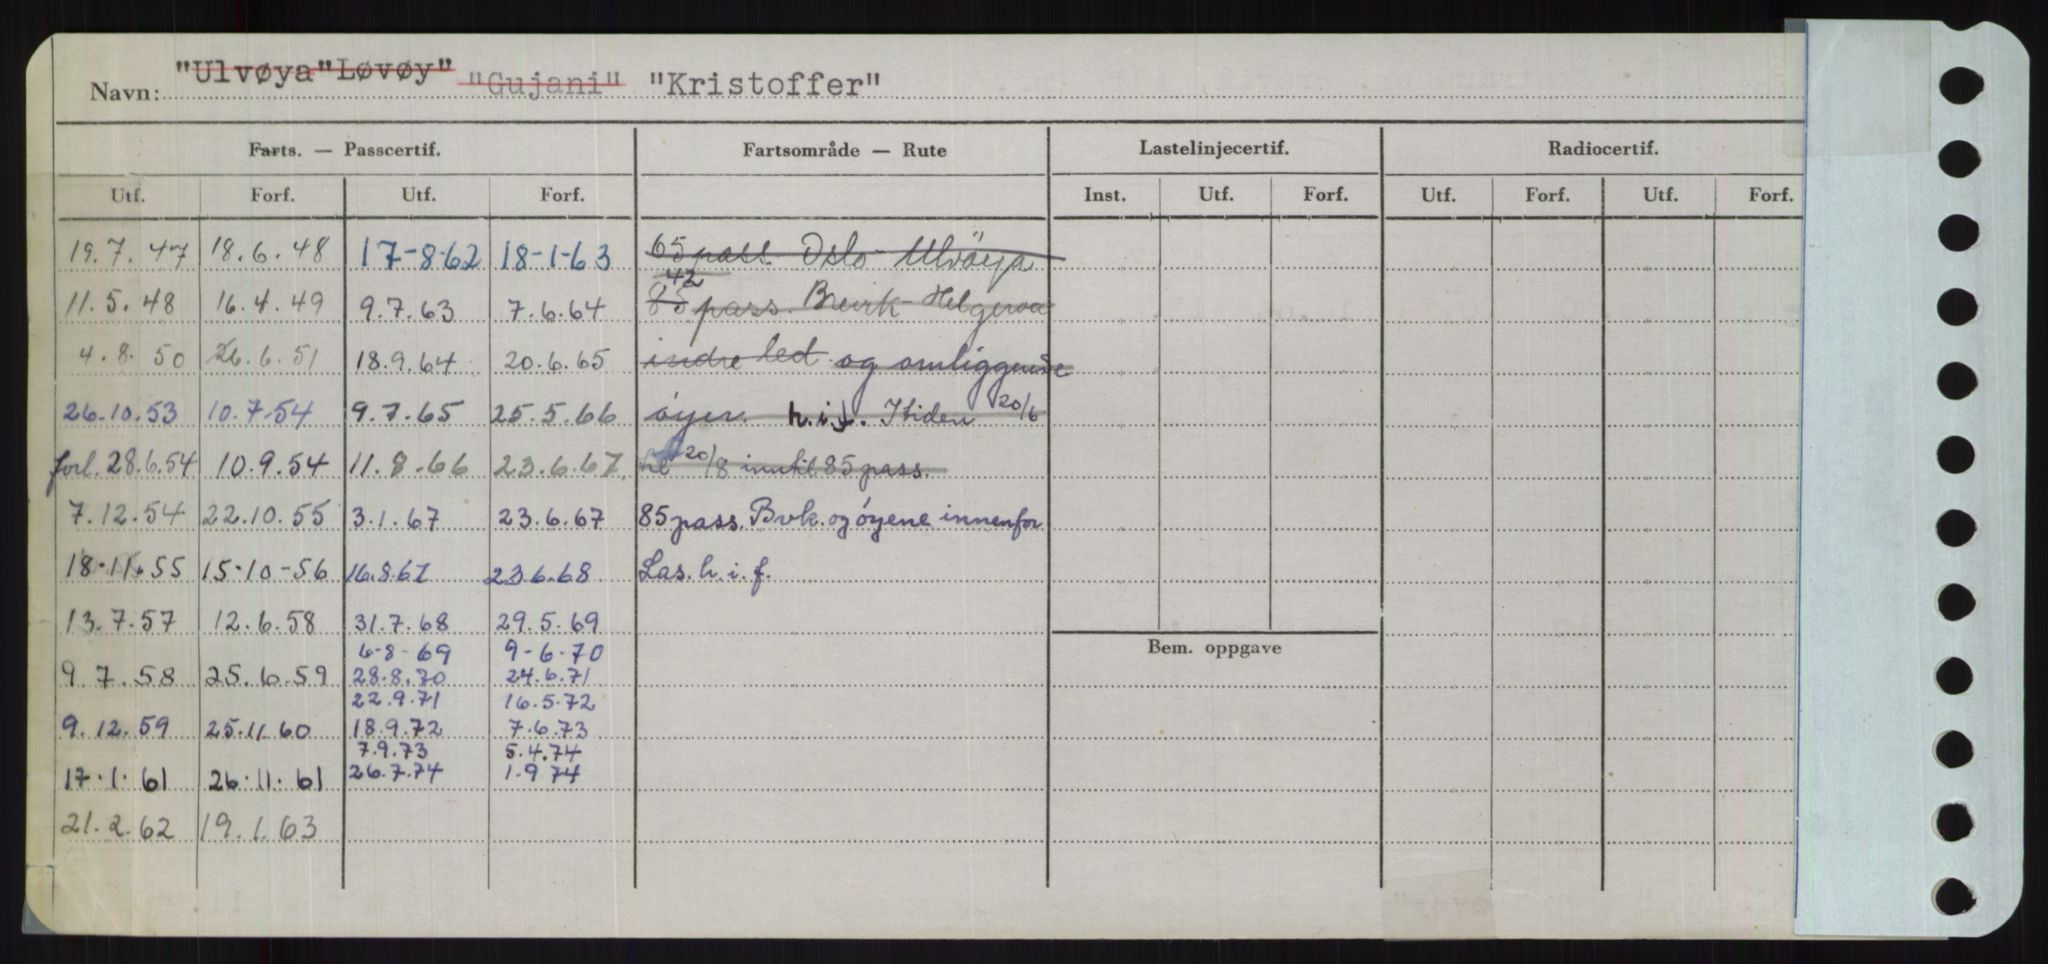 Navn: "Ulvøya" "Løvøy" "Gujani" "Kristoffer"
Farts. — Passcertif. Fartsområde — Rute Lastelinjecertif. Radiocertif.
Utf. Forf. Utf. Forf. Inst. Utf. Forf. Utf. Forf. Utf. Forf.
19.7.47 18.6.48 17-8-62 18-1-63 65 pass. Oslo - Ulvöya
42
11.5.48 16.4.49 9.7.63 7.6.64 85 pass. Brevik - Helgeroa
4.8.50 26.6.51 18.9.64 20.6.65 indre led og omliggende
26.10.53 10.7.54 9.7.65 25.5.66 øyer. h.i.f. I tiden 20/6
forl. 28.6.54 10.9.54 11.8.66 23.6.67 til 20/8 inntil 85 pass.
7.12.54 22.10.55 3.1.67 23.6.67 85 pass. Bvk. og øyene innenfor
18.11.55 15-10-56 16.8.67 23.6.68 Las. h.i.f.
13.7.57 12.6.58 31.7.68 29.5.69
6-8-69 9-6-70 Bem. oppgave
9.7.58 25.6.59 28.8.70 24.6.71
22.9.71 16.5.72
9.12.59 25.11.60 18.9.72 7.6.73
7.9.73 5.4.74
17.1.61 26.11.61 26.7.74 1.9.74
21.2.62 19.1.63